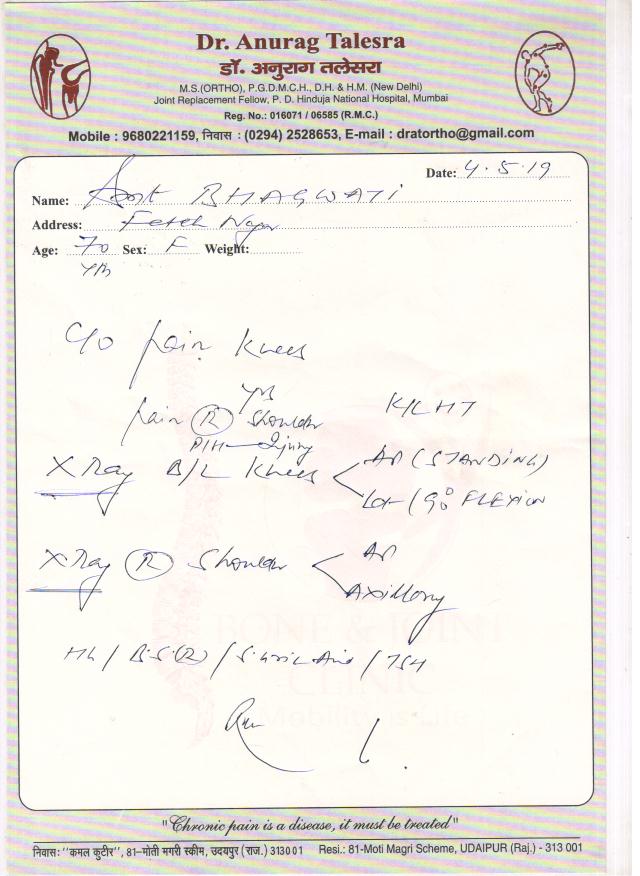 Dr. Anurag Talesra
डॉ. अनुराग तलेसरा
M.S.(ORTHO), P.G.D.M.C.H., D.H. & H.M. (New Delhi)
Joint Replacement Fellow, P. D. Hinduja National Hospital, Mumbai
Reg. No.: 016071 / 06585 (R.M.C.)
Mobile : 9680221159, निवास : (0294) 2528653, E-mail : dratortho@gmail.com
Date: 4.5.19
Name: Smt BHAGWATI
Address: Fateh Nagar
Age: 70 Sex: F Weight:
yrs
C/O pain Knees
yrs
K/C HT
pain (R) Shoulder
P/H Injury
X Ray B/L Knees
AP (STANDING)
Lat (90° FLEXION
X Ray (R) Shoulder
AP
Axillary
BONE & JOINT
CLINIC
Mobility is Life
/ B.S.(R) / S. Uric Acid / TSH
"Chronic pain is a disease, it must be treated"
निवास: "कमल कुटीर", 81–मोती मगरी स्कीम, उदयपुर (राज.) 313001 Resi.: 81-Moti Magri Scheme, UDAIPUR (Raj.) - 313 001